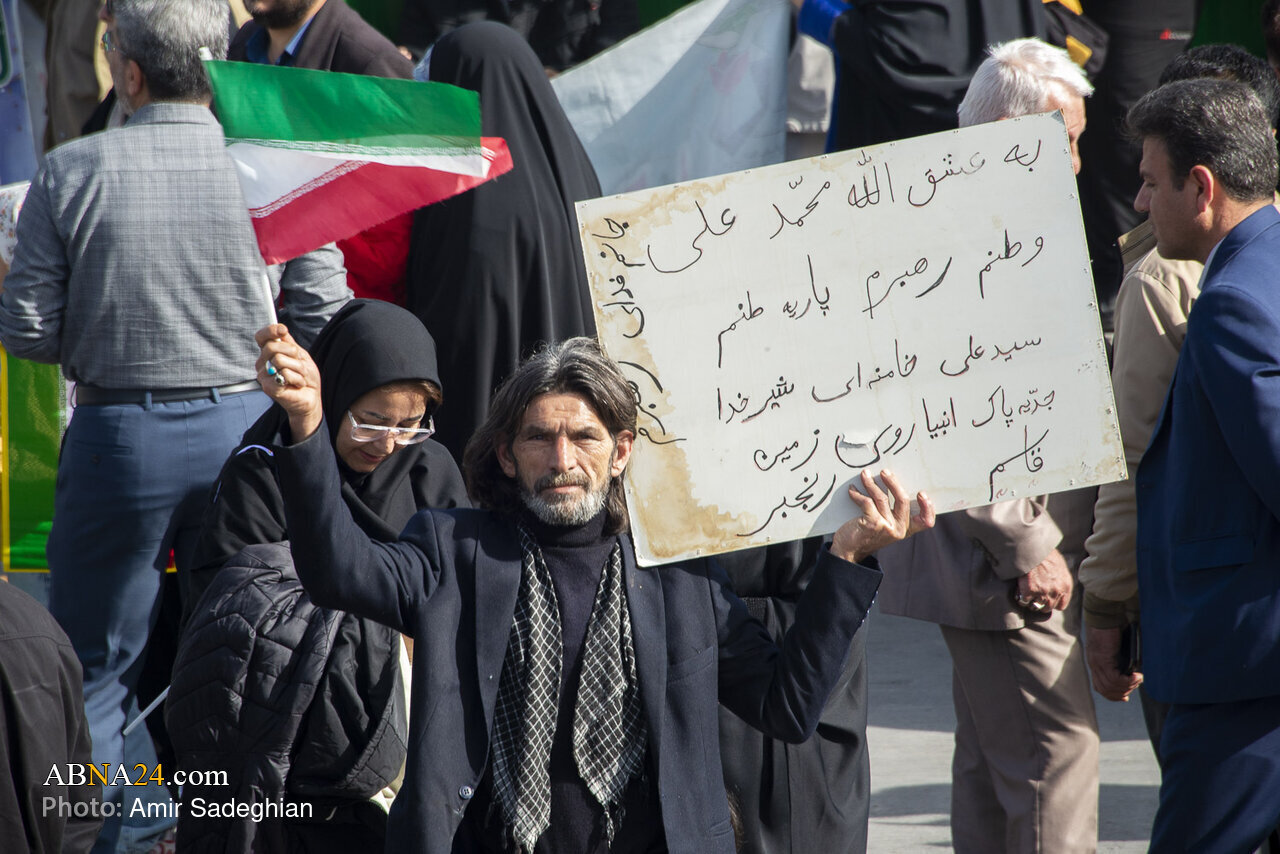 به عشق الله محمّد علی
وطنم رهبرم پاریه طنم
سید علی خامنه ای شیر خدا
جدّیه پاک انبیا روی زمین
قاسم رنجبر
جانم فدای رهبرم
ABNA24.com
Photo: Amir Sadeghian